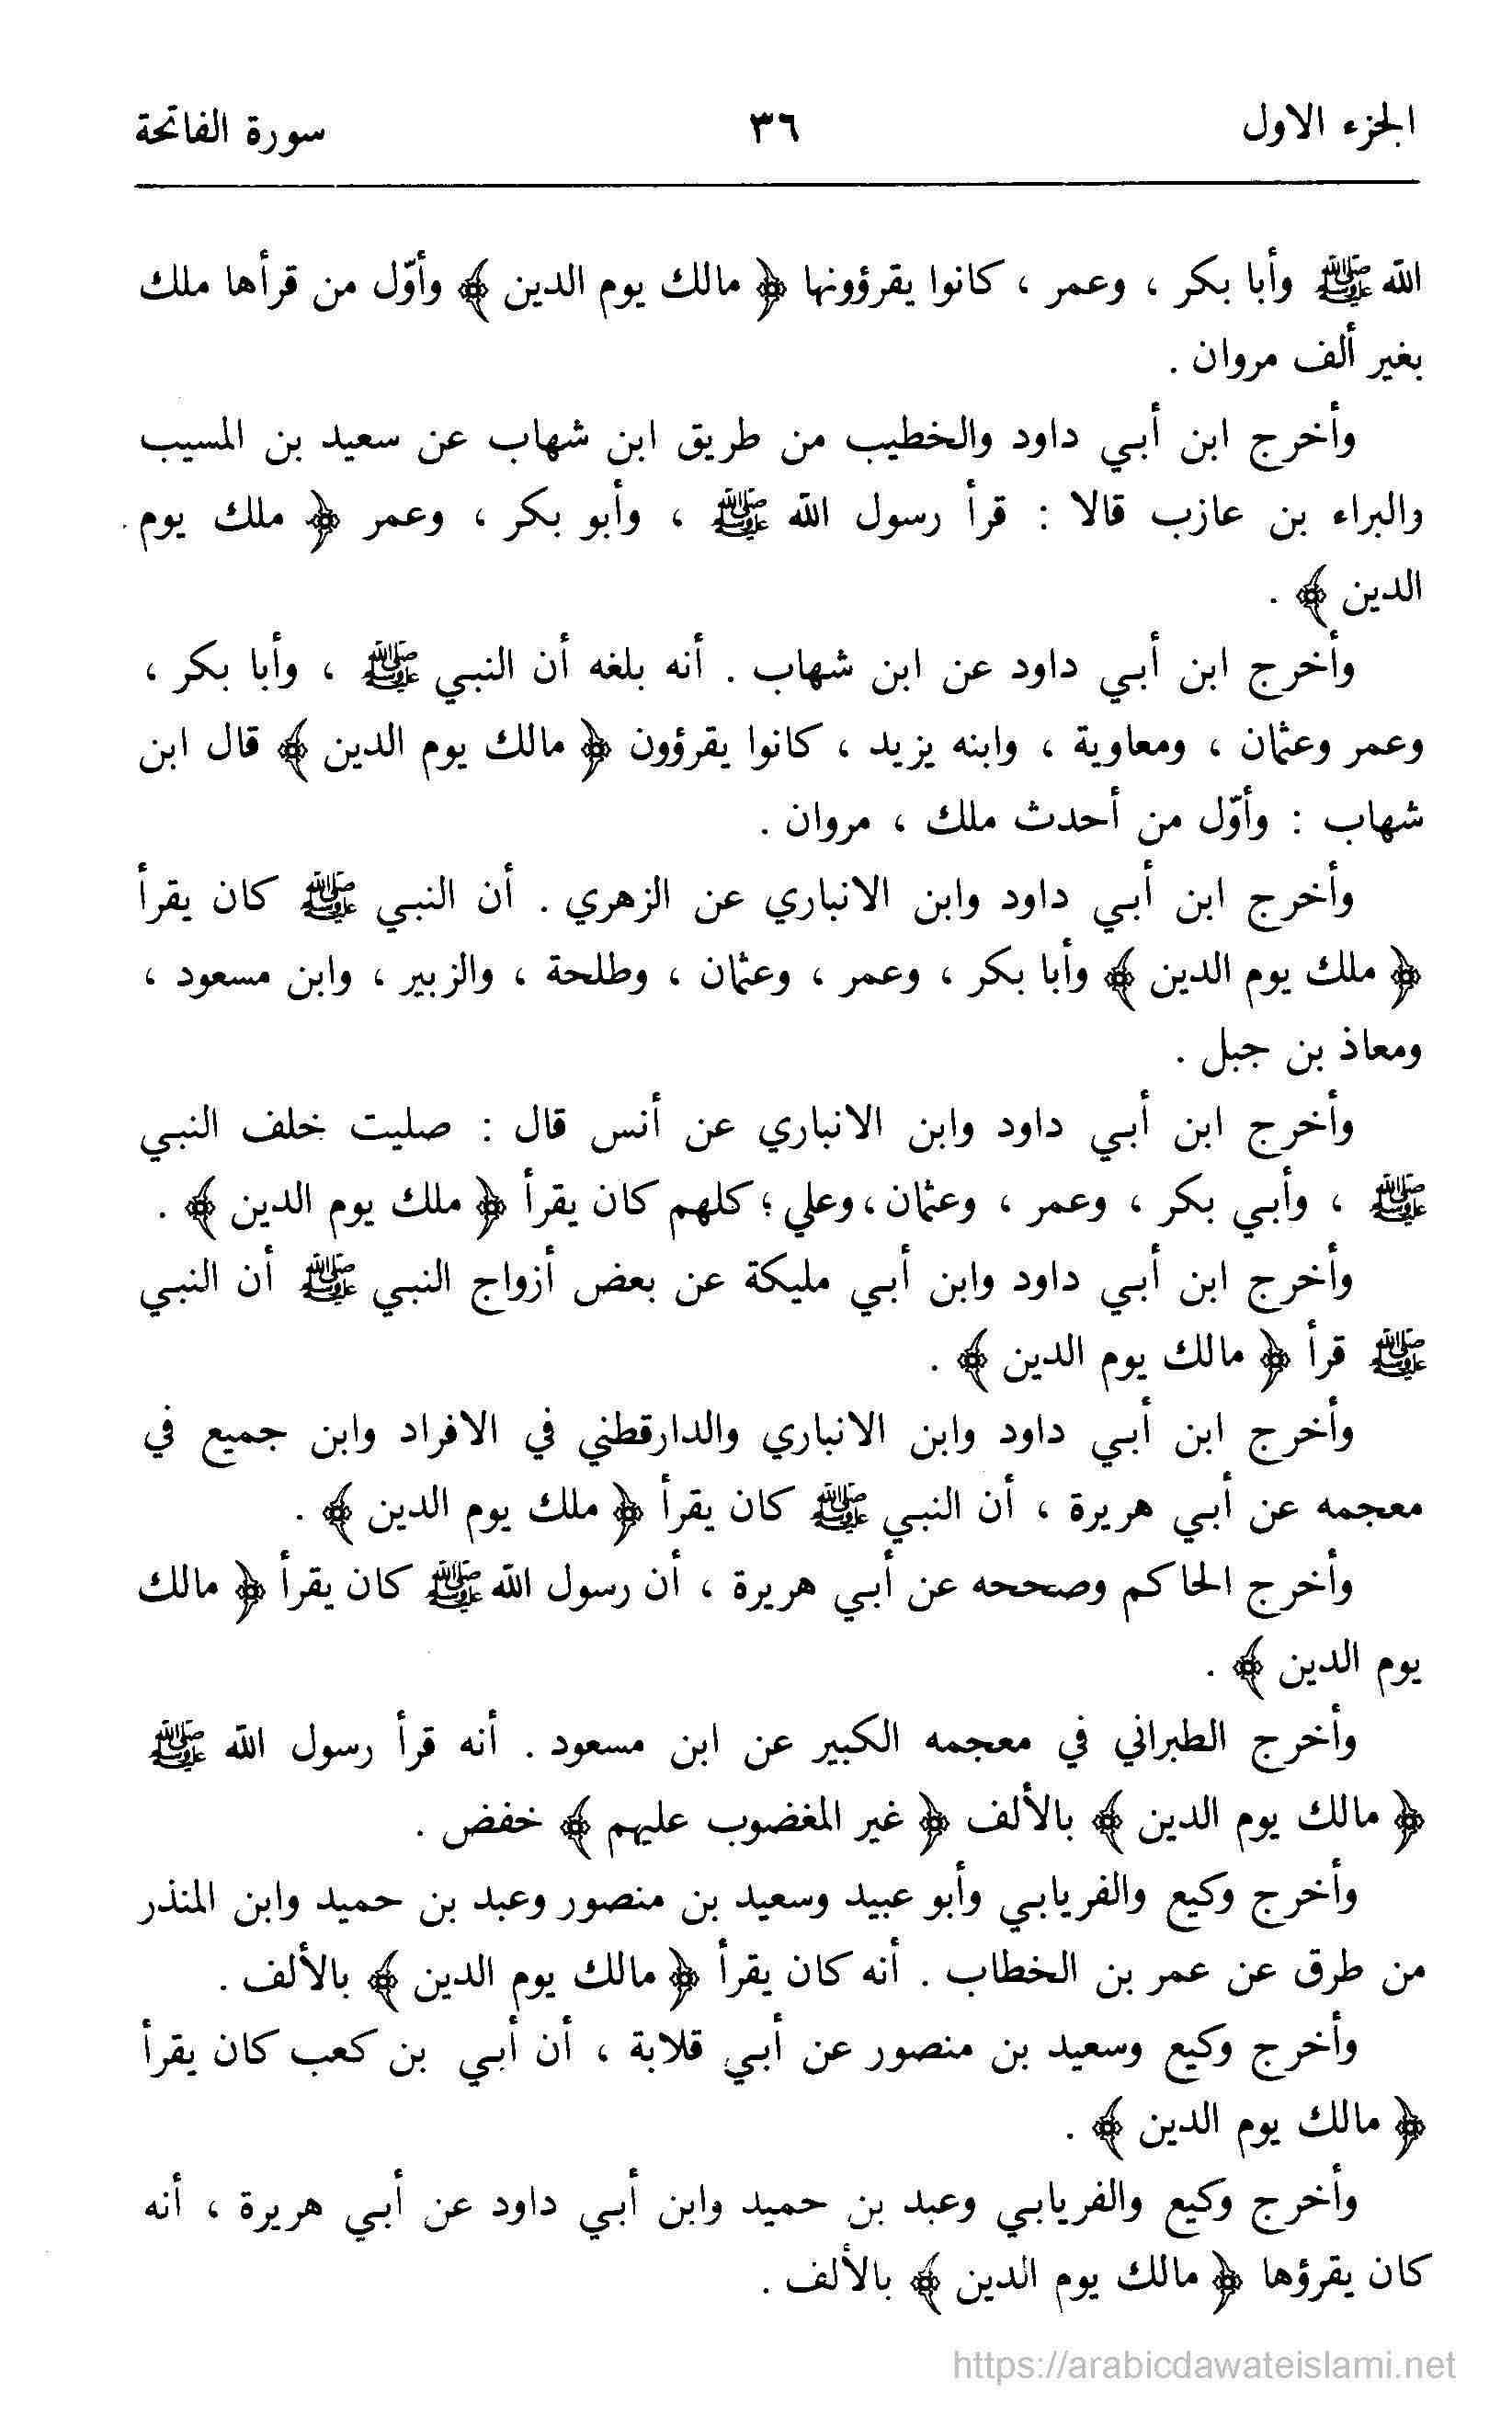 الجزء الاول ٣٦ سورة الفاتحة
الله ﷺ وأبا بكر ، وعمر ، كانوا يقرؤونها ﴿ مالك يوم الدين ﴾ وأوّل من قرأها ملك
بغير ألف مروان .
وأخرج ابن أبي داود والخطيب من طريق ابن شهاب عن سعيد بن المسيب
والبراء بن عازب قالا : قرأ رسول الله ﷺ ، وأبو بكر ، وعمر ﴿ ملك يوم
الدين ﴾ .
وأخرج ابن أبي داود عن ابن شهاب . أنه بلغه أن النبي ﷺ ، وأبا بكر ،
وعمر وعثمان ، ومعاوية ، وابنه يزيد ، كانوا يقرؤون ﴿ مالك يوم الدين ﴾ قال ابن
شهاب : وأوّل من أحدث ملك ، مروان .
وأخرج ابن أبي داود وابن الانباري عن الزهري . أن النبي ﷺ كان يقرأ
﴿ ملك يوم الدين ﴾ وأبا بكر ، وعمر ، وعثمان ، وطلحة ، والزبير ، وابن مسعود ،
ومعاذ بن جبل .
وأخرج ابن أبي داود وابن الانباري عن أنس قال : صليت خلف النبي
ﷺ ، وأبي بكر ، وعمر ، وعثمان ، وعلي ؛ كلهم كان يقرأ ﴿ ملك يوم الدين ﴾ .
وأخرج ابن أبي داود وابن أبي مليكة عن بعض أزواج النبي ﷺ أن النبي
ﷺ قرأ ﴿ مالك يوم الدين ﴾ .
وأخرج ابن أبي داود وابن الانباري والدارقطني في الافراد وابن جميع في
معجمه عن أبي هريرة ، أن النبي ﷺ كان يقرأ ﴿ ملك يوم الدين ﴾ .
وأخرج الحاكم وصححه عن أبي هريرة ، أن رسول الله ﷺ كان يقرأ ﴿ مالك
يوم الدين ﴾ .
وأخرج الطبراني في معجمه الكبير عن ابن مسعود . أنه قرأ رسول الله ﷺ
﴿ مالك يوم الدين ﴾ بالألف ﴿ غير المغضوب عليهم ﴾ خفض .
وأخرج وكيع والفريابي وأبو عبيد وسعيد بن منصور وعبد بن حميد وابن المنذر
من طرق عن عمر بن الخطاب . أنه كان يقرأ ﴿ مالك يوم الدين ﴾ بالألف .
وأخرج وكيع وسعيد بن منصور عن أبي قلابة ، أن أبي بن كعب كان يقرأ
﴿ مالك يوم الدين ﴾ .
وأخرج وكيع والفريابي وعبد بن حميد وابن أبي داود عن أبي هريرة ، أنه
كان يقرؤها ﴿ مالك يوم الدين ﴾ بالألف .
https://arabicdawateislami.net